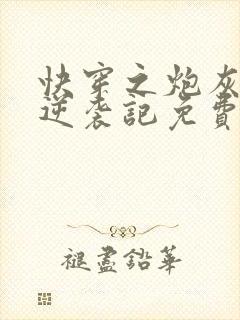 快穿之炮灰
逆袭記免費
褪盡鉛華